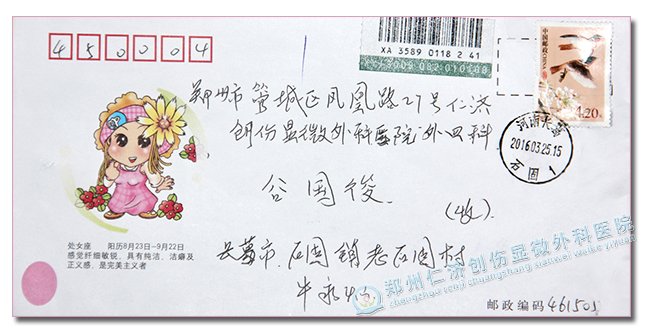 450004
XA 3589 0118 2 41
中国邮政 CHINA
4.20元
郑州市管城区凤凰路27号仁济
创伤显微外科医院外四科
河南长葛
2016.03.25.15
石固
1
谷国俊
(收)
处女座 阳历8月23日—9月22日
感觉纤细敏锐、具有纯洁、洁癖及
正义感、是完美主义者
长葛市石固镇老石固村
牛
郑州仁济创伤显微外科医院
zhengzhou renji chuangshang xianwei waike yiyuan
邮政编码 461501